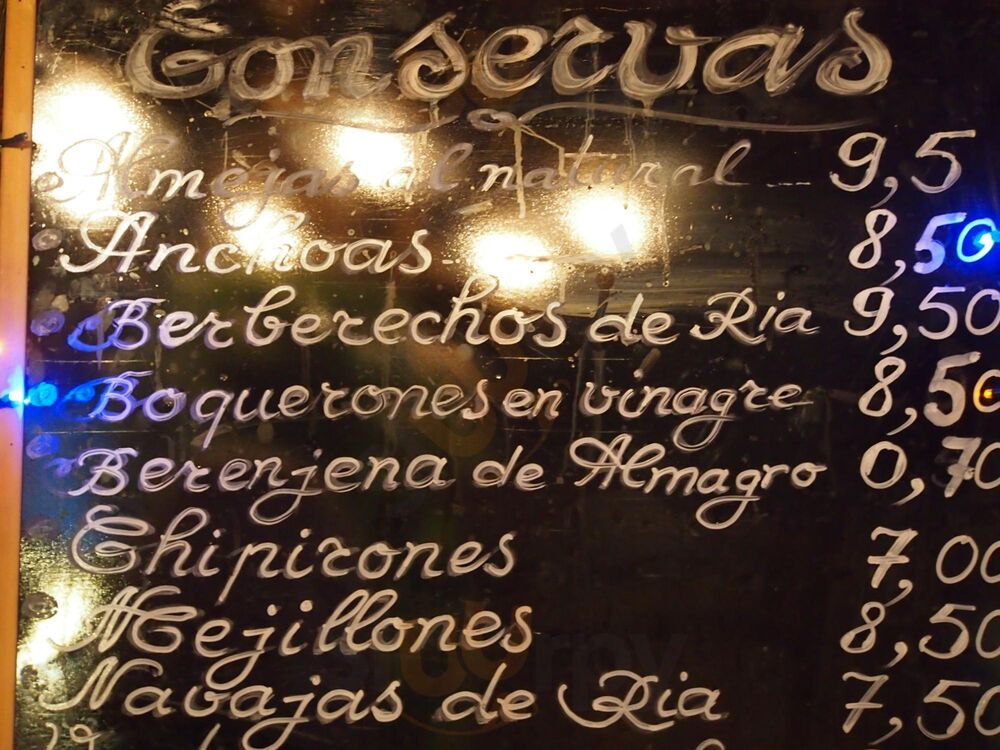 Conservas
Almejas al natural --- 9,5
Anchoas 8,50
Berberechos de Ria 9,50
Boquerones en vinagre 8,50
Berenjena de Almagro 0,70
Chipirones 7,00
Mejillones 8,50
Navajas de Ria 7,50